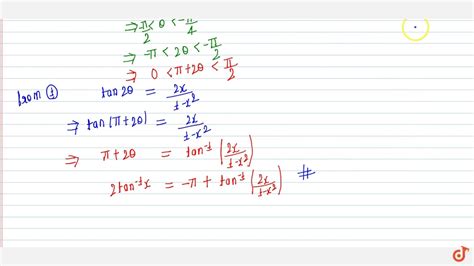 ⇒ π/2 < θ < -π/4
⇒ -π < 2θ < -π/2
⇒ 0 < π+2θ < π/2
from ① tan2θ = 2x/(1-x²)
⇒ tan(π+2θ) = 2x/(1-x²)
⇒ π+2θ = tan⁻¹(2x/(1-x²))
2tan⁻¹x = -π + tan⁻¹(2x/(1-x²)) #